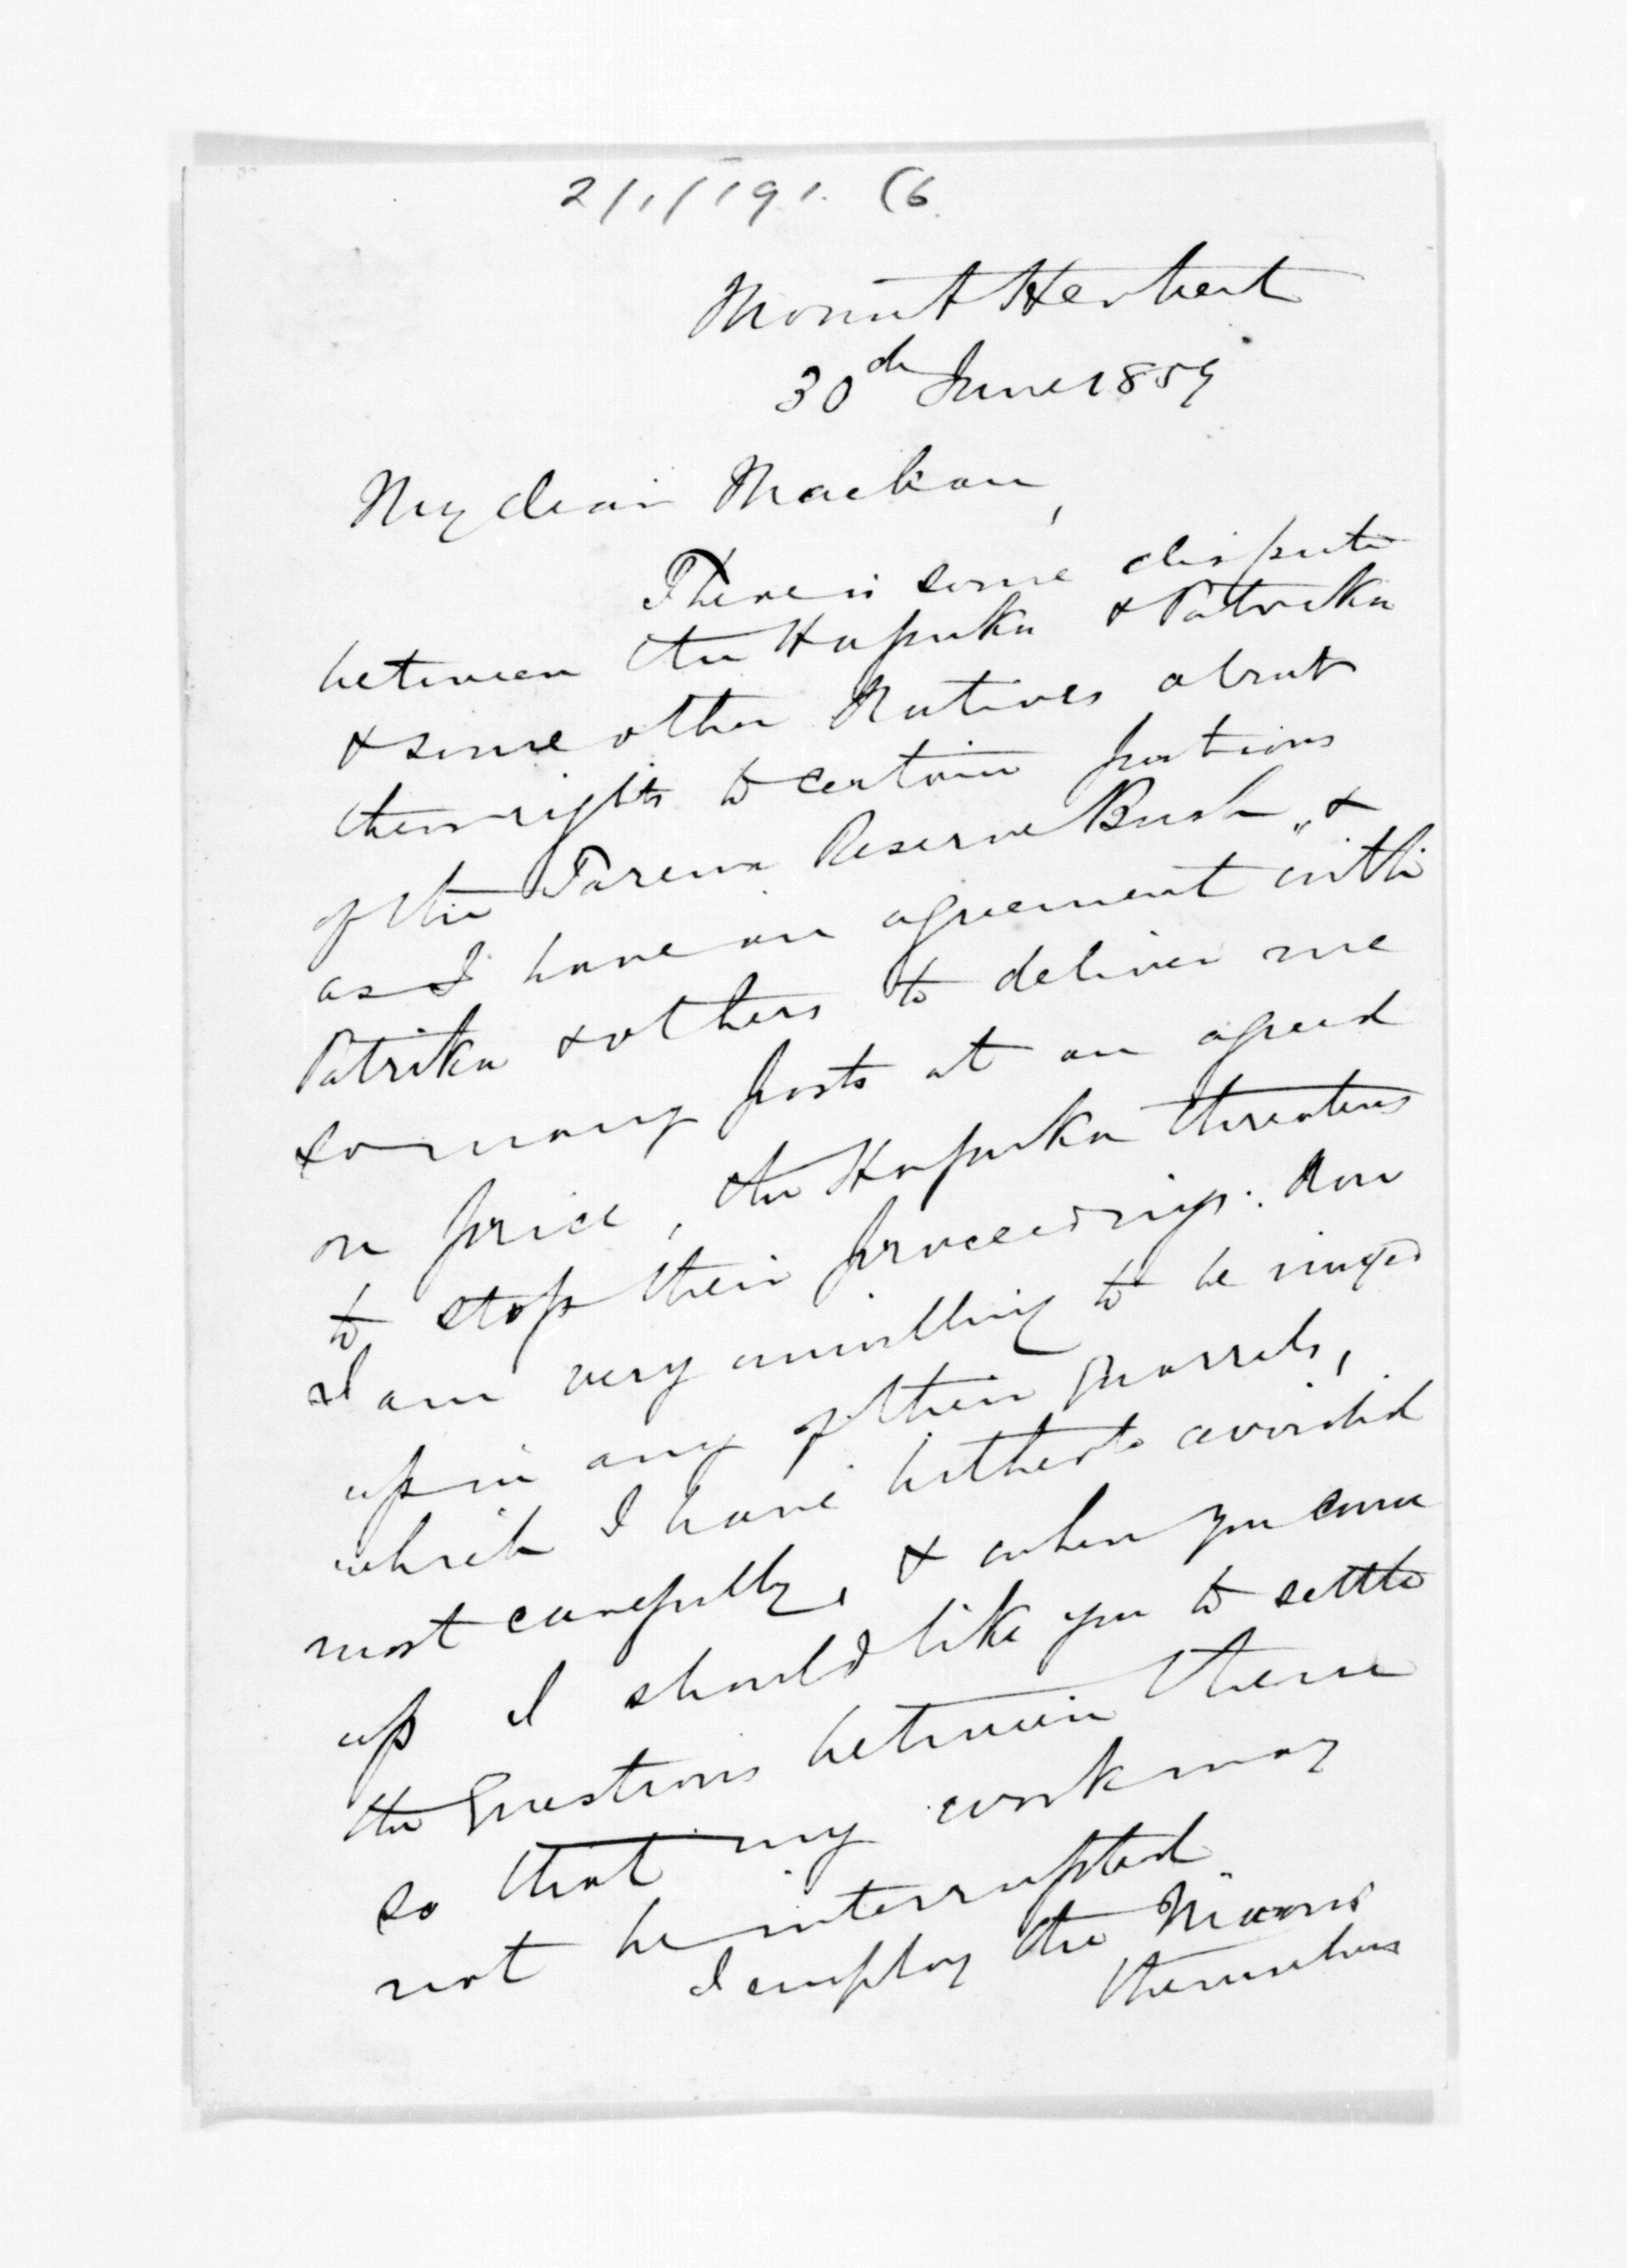 2/1/191. (6
Mount Herbert
30th June 1859
My dear Maclean,
There is some dispute
between the Hapuka & Patrika
& some other Natives about
their rights to certain portions
of the Tarewa Reserve Bush, &
as I have an agreement with
Patrika & others to deliver me
so many posts at an agreed
on price, the Hapuka threatens
to stop their proceedings. Now
I am very unwilling to be mixed
up in any of their quarrels,
which I have hitherto avoided
most carefully, & when you come
up I should like you to settle
the Questions between them
so that my work may
not be interrupted.
I employ the Maoris
themselves